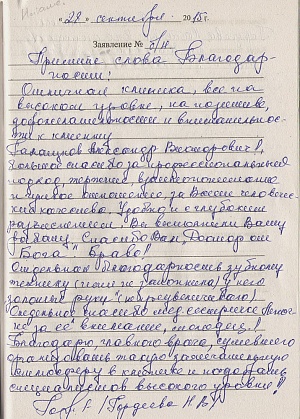 "28" сентября 2015 г.
Заявление № б/н
Примите слова Благодар-
ности!
Отличная клиника, всё на
высоком уровне, на позитиве,
доброжелательности и внимательнос-
ти к клиенту
Александр Викторович!,
большое спасибо за профессиональный
подход, терпение,
и чуткое отношение, за Ваши человечес-
кие качества. Удобно и с глубоким
разъяснением, Вы выполнили Вашу
работу. Спасибо Вам, Доктор от
Бога"! Браво!
Отдельная благодарность зубному
технику (имени не запомнила) у него
золотые руки"
Отдельное спасибо мед.сестричке
за её внимание, молодец!
Благодарю главного врача, сумевшего
организовать такую замечательную
атмосферу в клинике и подобрать
специалистов высокого уровня!!
/Гордеева Н.В./